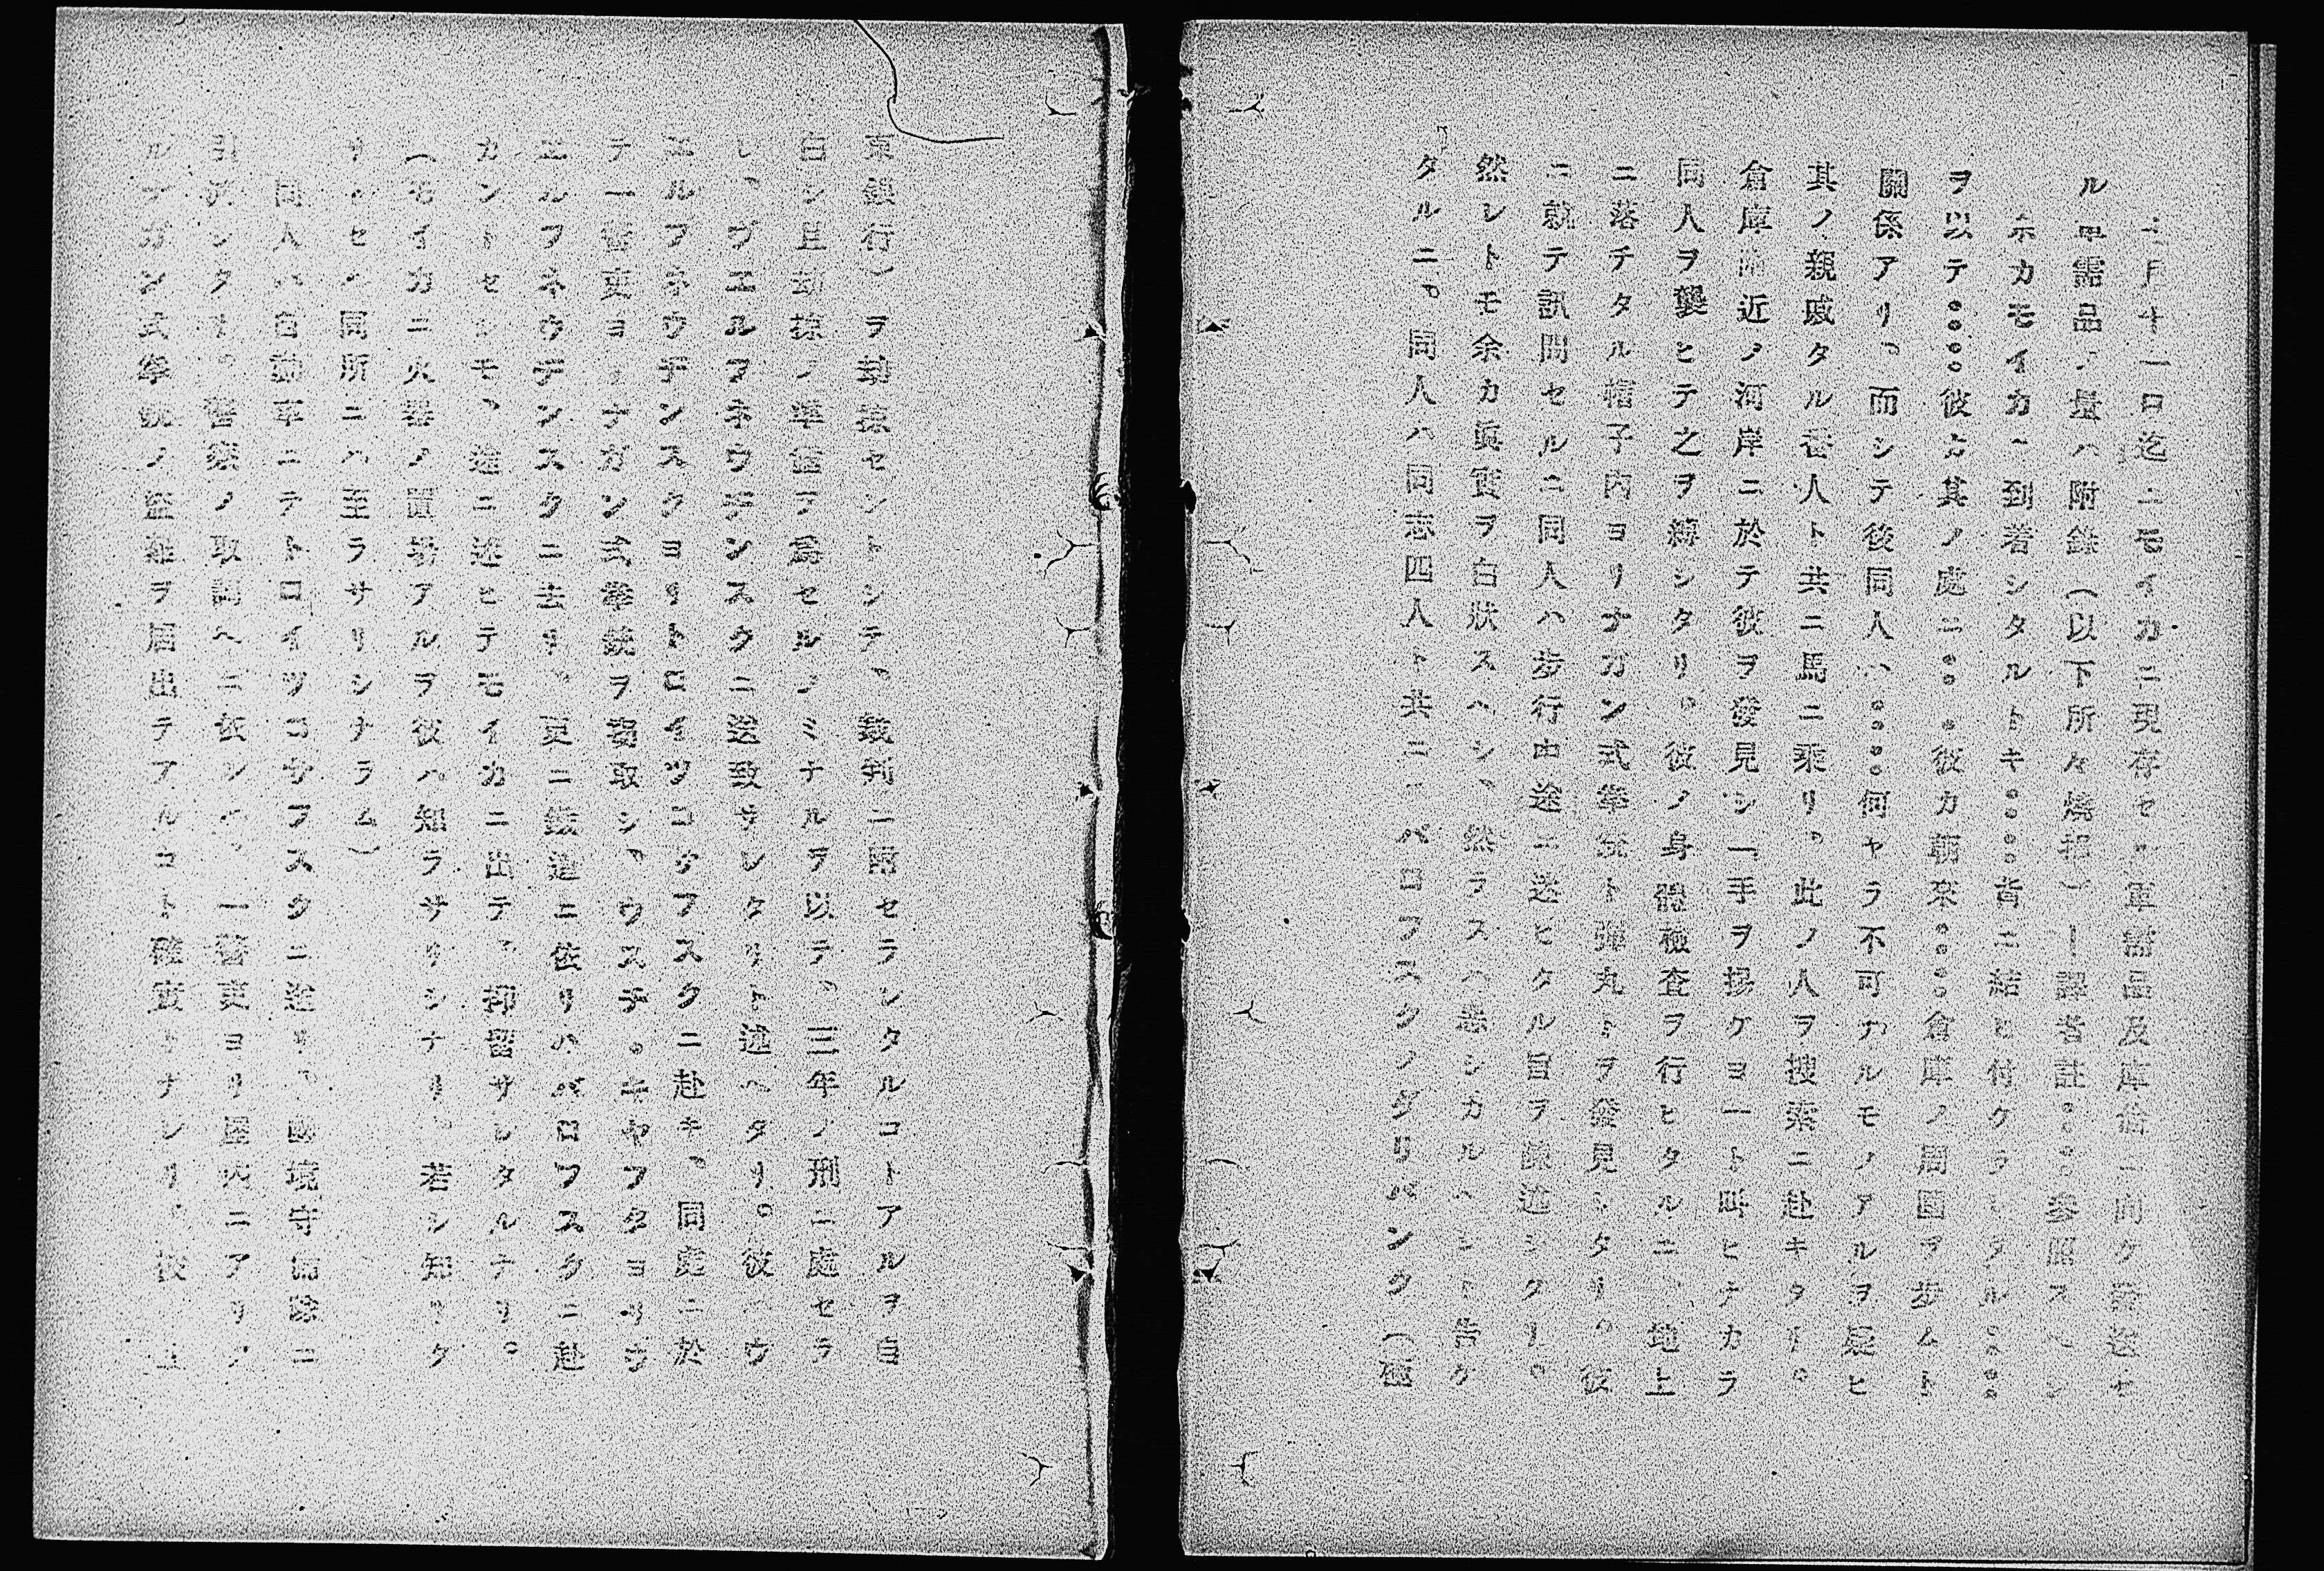 七月十一日迄ニモイカニ現存セル軍需品及庫倉ニ向ケ發送セ
ル軍需品ノ量ハ附錄(以下所々燒損ス)ー譯者註。。。參照スヘシ
余カモイカニ到着シタルトキ。。。背ニ結ヒ付ケラレタル。。。
ヲ以テ。。。。彼カ其ノ處ニ。。。彼カ朝來。。。。倉庫ノ周圍ヲ步ムト
關係アリ。而シテ後同人ハ。。。。何ヤラ不可ナルモノアルヲ疑ヒ
其ノ親戚タル番人ト共ニ馬ニ乘リ。此ノ人ヲ搜索ニ赴キタリ。
倉庫附近ノ河岸ニ於テ彼ヲ發見シ「手ヲ揚ゲヨ」ト叫ヒナカラ
同人ヲ襲ヒテ之ヲ縛シタリ。彼ノ身體檢査ヲ行ヒタルニ、地上
ニ落チタル帽子內ヨリナガン式拳銃ト彈丸トヲ發見シタリ。彼
ニ就テ訊問セルニ同人ハ步行中途ニ迷ヒタル旨ヲ陳述シタリ。
然レトモ余カ眞實ヲ白狀スヘシ、然ラスハ惡シカルヘシト告ケ
タルニ。同人ハ同志四人ト共ニ、パロフスクノダリバンク(極
東銀行)ヲ劫掠セントシテ、裁判ニ附セラレタルコトアルヲ自
白シ且劫掠ノ準備ヲ爲セルノミナルヲ以テ、三年ノ刑ニ處セラ
レ、ヴエルフネウヂンスクニ送致サレタリト述ヘタリ。彼ハウ
エルフネウヂンスクヨリトロイツコサフスクニ赴キ、同處ニ於
テ一警吏ヨリナガン式拳銃ヲ竊取シ、ウスチ。キヤフタヨリウ
エルフネウヂンスクニ去リ、更ニ鐵道ニ依リハバロフスクニ赴
カントセシモ、途ニ迷ヒテモイカニ出テ、抑留サレタルナリ。
(モイカニ火器ノ置場アルヲ彼ハ知ラサリシナリ。若シ知リタ
リトセハ同所ニハ至ラサリシナラム)
同人ハ自動車ニテトロイツコサフスクニ送リ、國境守備隊ニ
引渡シタリ。警察ノ取調ヘニ依レハ、一警吏ヨリ屋內ニアリタ
ルナガン式拳銃ノ盜難ヲ屆出テアルコト確實トナレリ。彼ハ上